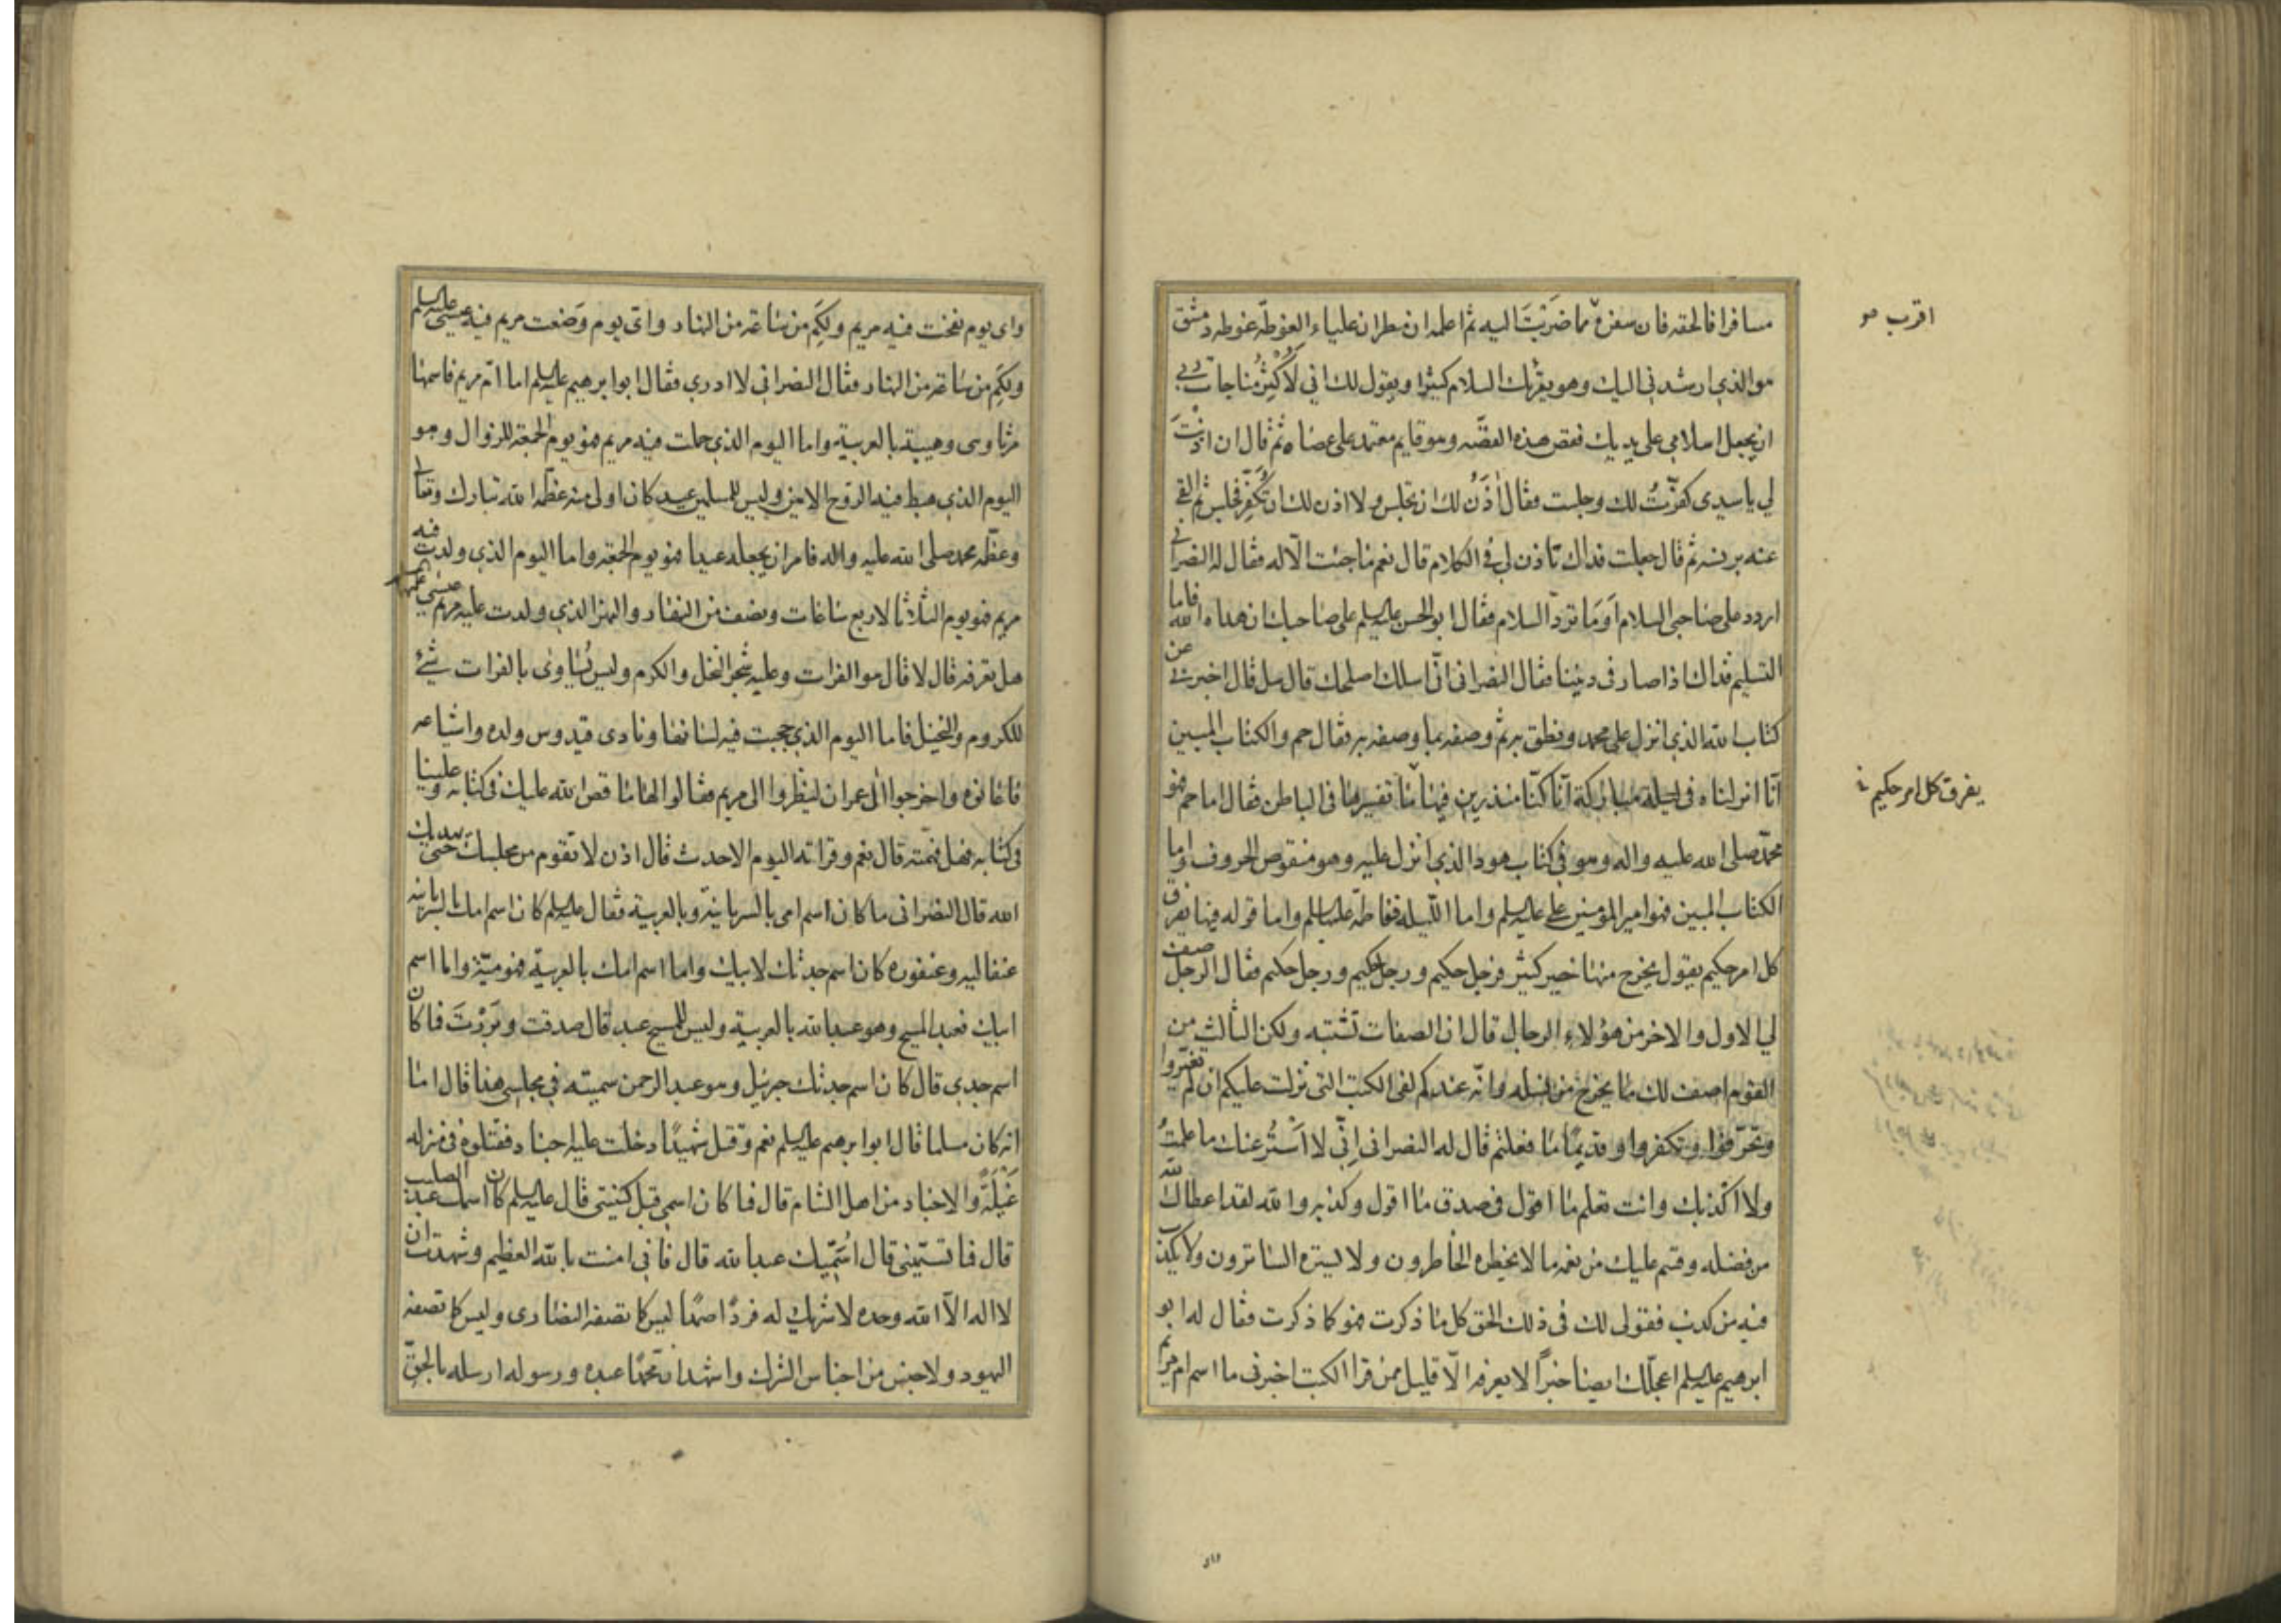 مسافرا فالحقه فان سفره مما ضربت اليه ثم اعلمه ان مطران علياء الغوطة غوطه دمشق
هو الذي ارشدني اليك وهو يقرئك السلام كثيرا ويقول لك اني لاكثر مناجات ربي
ان يجعل اسلامي على يديك فقص هذه القصّه وهو قايم معتمد على عصاه ثم قال ان اذنت
لي يا سيدى كفّرت لك وجلست فقال أذن لك ان تجلس ولا اذن لك ان تكفّر فجلس ثم القى
عنه برنسه ثم قال جعلت فداك تأذن لي في الكلام قال نعم ما جئت الّا له فقال له النصرانى
اردد على صاحبى السلام أوَما تردّ السلام فقال ابو الحسن عليه السلم على صاحبك ان هداه الله فاما
التسليم فذاك اذا صار في ديننا فقال النصرانى انّى اسلك اصلحك قال سل قال اخبرني عن
كتاب الله الذي انزل على محمد ونطق به ثم وصفه بما وصفه به فقال حم والكتاب المبين
انّا انزلناه فى ليلة مباركة انّا كنّا منذرين فيها ما تفسيرها فى الباطن فقال اما حم فهو
محمّد صلى الله عليه واله وهو في كتاب هود الذي انزل عليه وهو منقوص الحروف واما
الكتاب المبين فهو امير المؤمنين على عليه السلم واما الليله ففاطمة عليها السلم واما قوله فيها يفرق
كل امر حكيم يقول يخرج منها خير كثير فرجل حكيم ورجل حكيم ورجل حكيم فقال الرجل صف
لي الاول والاخر من هؤلاء الرجال قال ان الصفات تشتبه ولكن الثالث من
القوم اصف لك ما يخرج من نسله وانّه عندكم لفى الكتب التى نزلت عليكم ان لم تغيّروا
وتحرّفوا وتكفروا وقديمًا ما فعلتم قال له النصرانى انّى لا أستُر عنك ما علمتُ
ولا اكذبك وانت تعلم ما اقول فى صدق ما اقول وكذبه والله لقد اعطاك الله
من فضله وقسم عليك من نعمه ما لا يخطره الخاطرون ولا يستره الساترون ولا يكذب
فيه من كذب فقولى لك فى ذلك الحق كل ما ذكرت فهو كما ذكرت فقال له ابو
ابرهيم عليه السلم اعجلك ايضا خبرًا لا يعرفه الّا قليل ممن قرا الكتب اخبرنى ما اسم ام مريم
اقرب هو
يفرق كل امر حكيم
واى يوم نفخت فيه مريم ولكَم من ساعة من النهار واى يوم وضعت مريم فيه عيسى عليه السلم
ولكَم من ساعة من النهار فقال النصرانى لا ادري فقال ابو ابرهيم عليه السلم اما امّ مريم فاسمها
مرثا وهى وهيبة بالعربية واما اليوم الذي حملت فيه مريم فهو يوم الجمعة للزوال وهو
اليوم الذي هبط فيه الروح الامين وليس للمسلمين عيد كان اولى منه عظّمه الله تبارك وتعالى
وعظّمه محمد صلى الله عليه واله فامر ان يجعله عيدا فهو يوم الجمعة واما اليوم الذي ولدت فيه
مريم فهو يوم الثلاثا لاربع ساعات ونصف من النهار والنهر الذي ولدت عليه مريم عيسى
هل تعرفه قال لا قال هو الفرات وعليه شجر النخل والكرم وليس يُساوى بالفرات شىء
للكروم والنخيل فاما اليوم الذي حجبت فيه لسانها ونادى قيدوس ولده واشياعه
فاعانوه واخرجوا الى عمران لينظروا الى مريم فقالوا لها ما قص الله عليك في كتابه وعلينا
فى كتابه فهل فهمته قال نعم وقراته اليوم الاحدث قال اذن لا تقوم من مجلسك حتى يهديك
الله قال النصرانى ما كان اسم امى بالسريانيّة وبالعربية فقال عليه السلم كان اسم امك بالسريانيه
عنقاليه وعنقوره كان اسم جدتك لابيك واما اسم امك بالعربية فهو ميّة واما اسم
ابيك فعبد المسيح وهو عبد الله بالعربية وليس للمسيح عبد قال صدقت وبررتَ فما كان
اسم جدى قال كان اسم جدك جبرئيل وهو عبد الرحمن سميته في مجلسى هذا قال اما
انه كان مسلما قال ابو ابرهيم عليه السلم نعم وقتل شهيدًا دخلت عليه اجناد فقتلوه فى منزله
غيلةً والاجناد من اهل الشام قال فما كان اسمى قبل كنيتى قال عليه السلم كان اسمك عبد الصليب
قال فما تسمّينى قال اسمّيك عبد الله قال فانى امنت بالله العظيم وشهدت ان
لا اله الّا الله وحده لا شريك له فردًا صمدًا ليس كما تصفه النصارى وليس كما تصفه
اليهود ولا جنس من اجناس الشرك واشهد ان محمّدًا عبده ورسوله ارسله بالحقّ